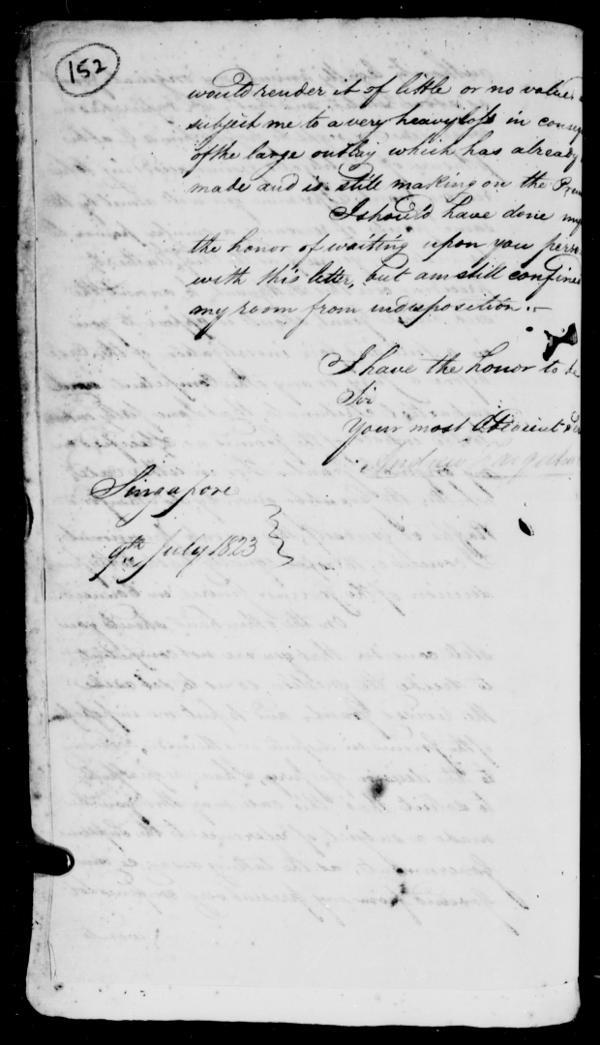 152
would render it of little or no value
subject me to a very heavy loss in conseq
of the large outlay which has already
made and is still making on the Prem
I should have done my
the honor of waiting upon you pers
with this letter, but am still confine
my room from indisposition.—
I have the honor to be
Sir
Your most Obedient
Andrew Farquhar
Singapore
9th July 1823